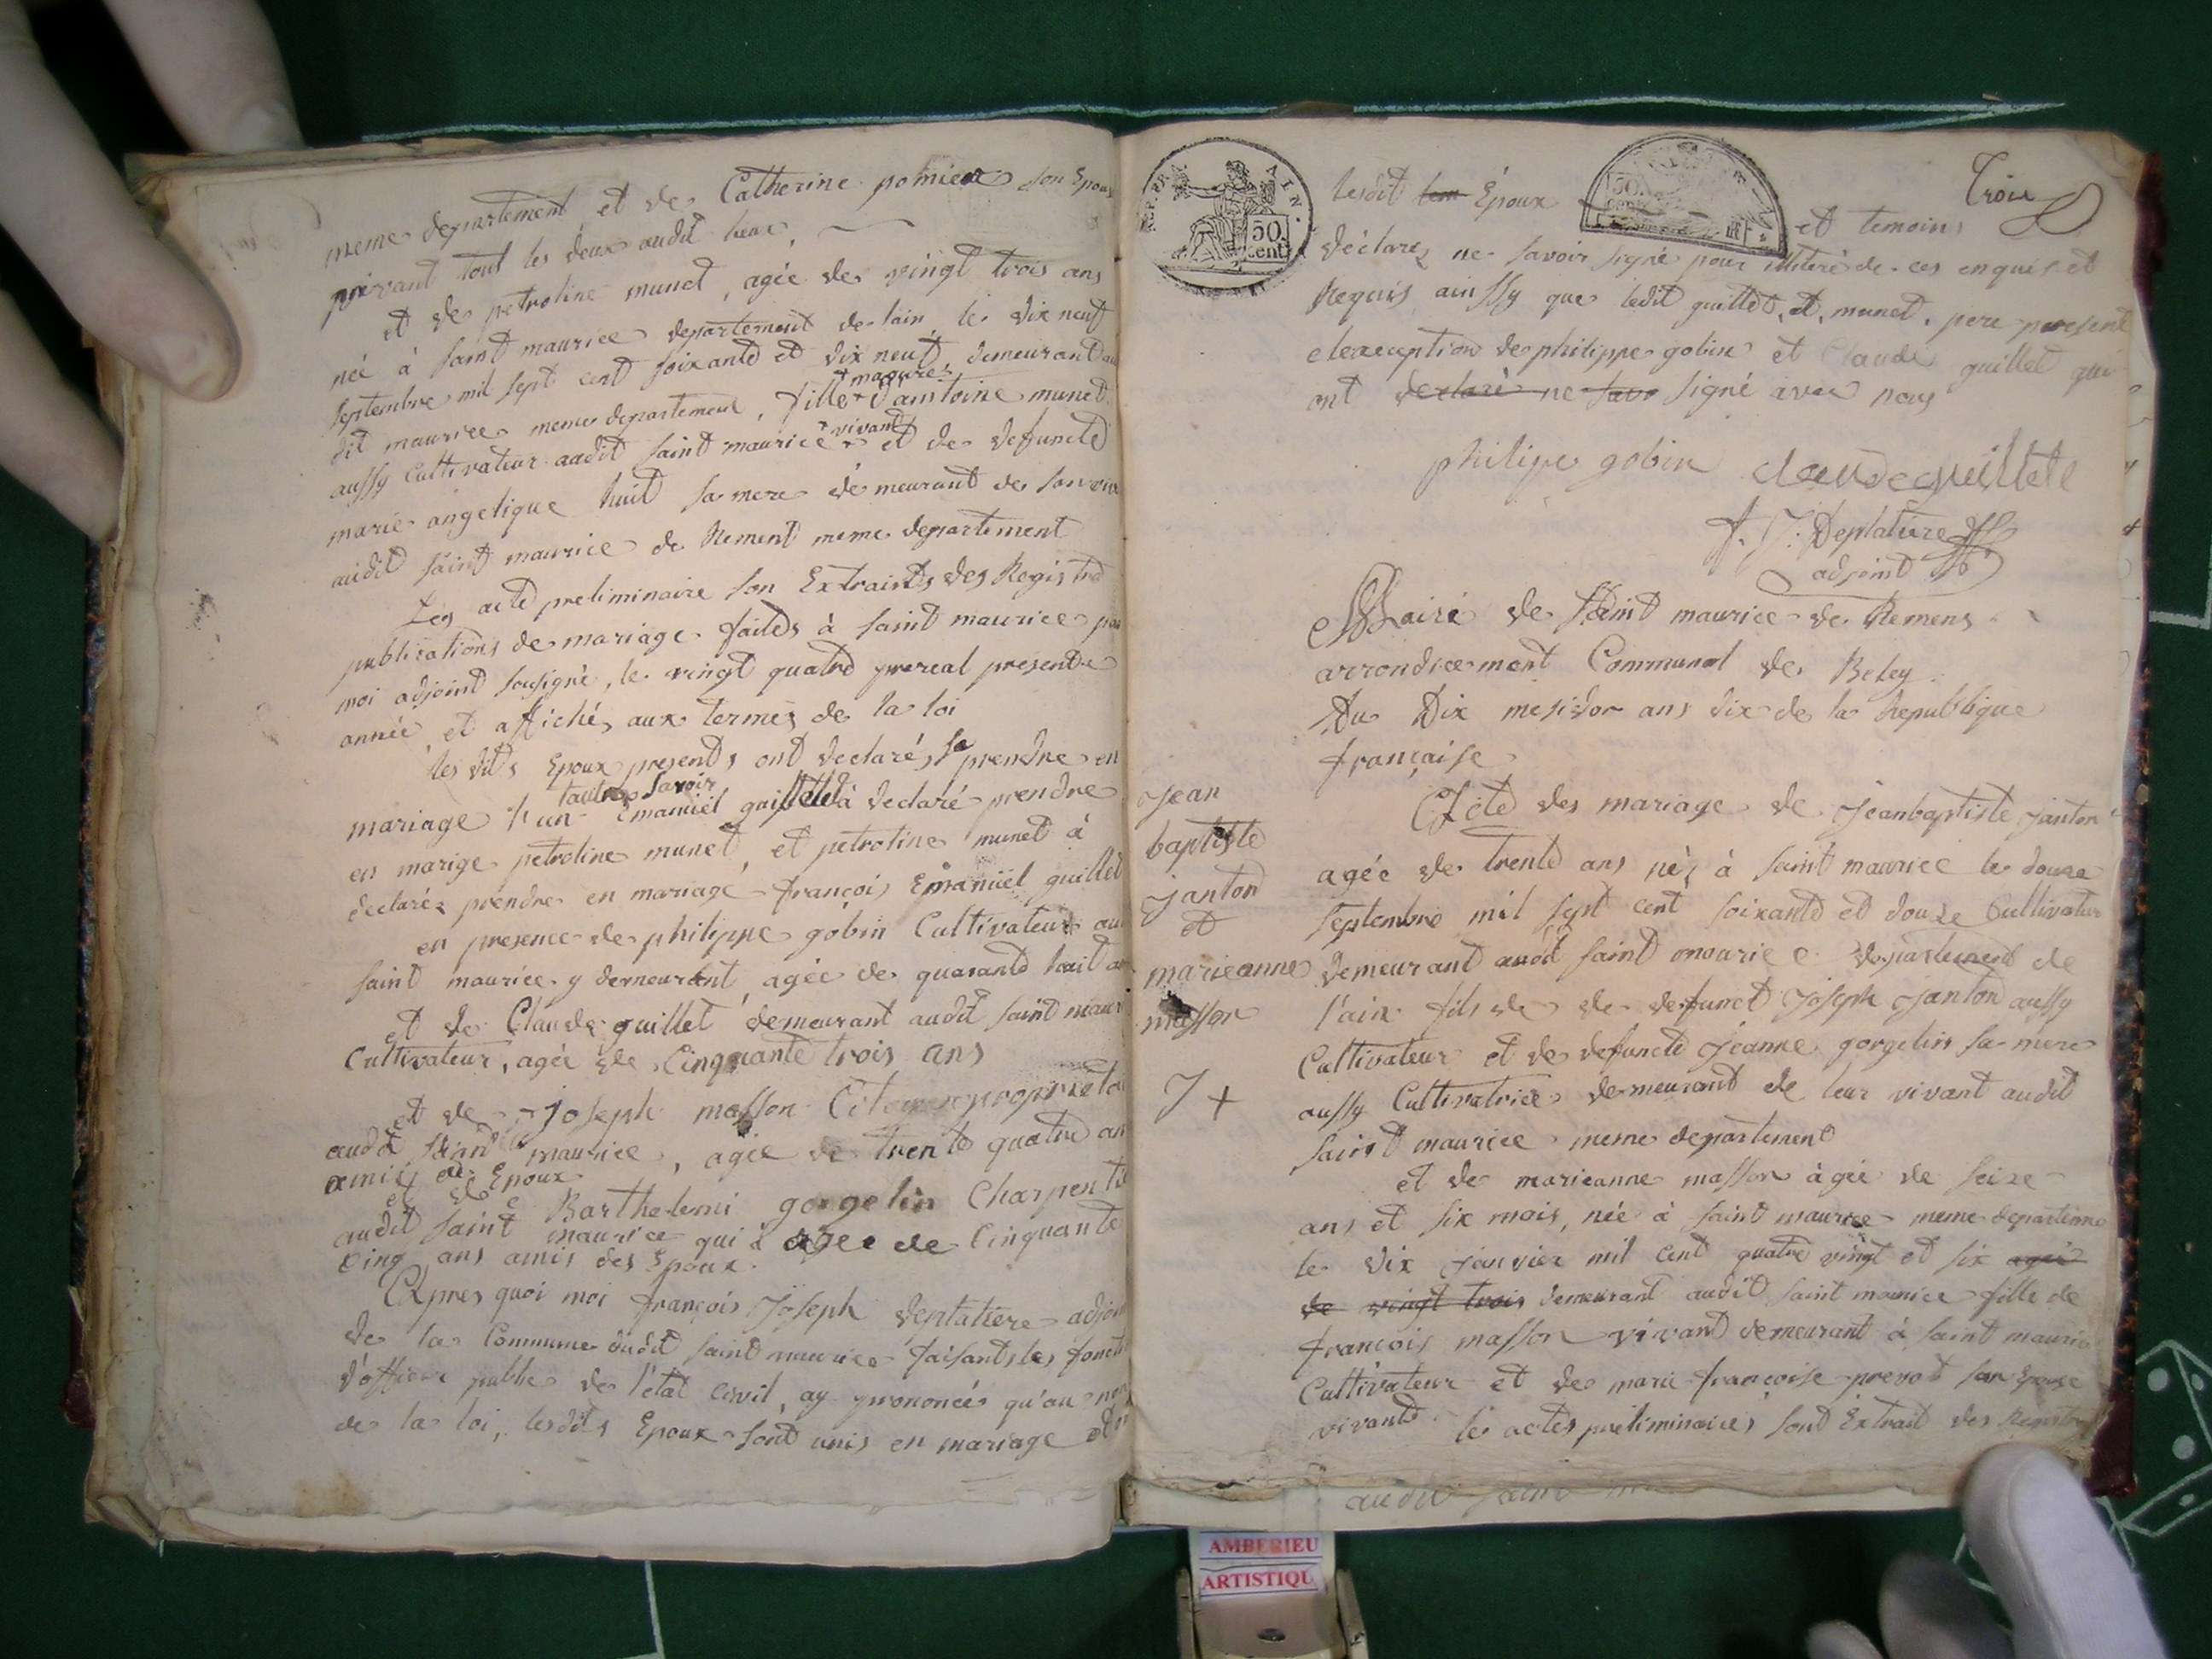 meme departement et de Catherine pomier son Epou
vivant tout les deux audit lieux,
et de petroline munet, agée de vingt trois ans
née à saint maurice departement de lain le dix neuf
septembre mil sept cent soixante et dix neuf, demeurant au
dit maurice meme departement, fille + d'antoine munet
+ mageure
aussy Cultivateur audit saint maurice + et de defuncte
+ vivant
marie angelique huit sa mere demeurant de son viv
audit saint maurice de Rement meme departement
Les acte preliminaire son Extraits des Registre
publications de mariage faites à saint maurice par
moi adjoint sousigné, le vingt quatre prereal presente
année et affiché, aux termes de la loi
les dits Epoux presents ont declaré, se prendre en
mariage l'un l'autre savoir Emanuël guillet à declaré prendre
en marige petroline munet, et petroline munet à
declaréz prendre en mariagé françois Emanuël guillet
en presence de philippe gobin Cultivateur au
saint maurice y demeurant, agée de quarante huit an
et de Claude guillet demeurant audit saint maur
Cultivateur, agée de Cinquante trois ans
et de joseph masson Citoyen proprieta
audit saint maurice, agée de trente quatre an
amis de Epoux
et de Barthelemi gorgelin Charpentié
audit saint maurice qui à agee de Cinquante
cinq ans amis des Epoux.
Apres quoi moi françois Joseph deplatiere adjoin
de la Commune dudit saint maurice faisants les foncti
d'officier public de l'etat civil, ay prononcés qu'au nom
de la loi, lesdits Epoux sont unis en mariage et
REP. FRA. AIN.
50 cent
50.
Troix
lesdit les Époux et temoins
déclarez ne savoir signé pour illiteré de ces enquis et
Requis ainssy que ledit guillet, et, munet, pere present
elexception de philippe gobin et Claude guillet qui
ont declaré ne savo signé avec nous
philipe gobin claudeguillete
f. J. Deplatiere
adjoint
Mairie de Saint maurice de Remens
arrondicement Communal de Beley
Du Dix mesidor ans dix de la Republique
française
Jean
baptiste
janton
et
marieanne
masson
J +
Acte des mariage de jeanbaptiste janton
agée de trente ans néz à saint maurice le douze
septembre mil sept cent soixante et douze Cultivateur
demeurant audit saint maurice departement de
l'ain fils de de defunct joseph janton aussy
Cultivateur et de defuncte jéanne gorgelin sa mere
aussy Cultivatrice demeurant de leur vivant audit
saint maurice meme departement
et de marieanne masson àgée de seize
ans et six mois, née à saint maurice meme departeme
le dix janvier mil cent quatre vingt et six agée
de vingt trois demeurant audit saint maurice fille de
françois masson vivant demeurant à saint maurice
Cultivateur et de marie françoise prevot son epouse
vivante. les actes preliminaires sont Extrait des Registre
audit saint
AMBERIEU
ARTISTIQU